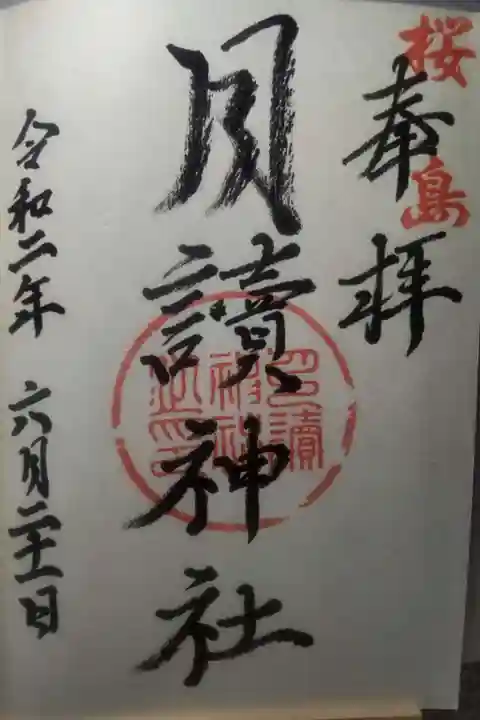 桜島
奉拝
月讀神社
月讀神社
令和二年 六月二十一日